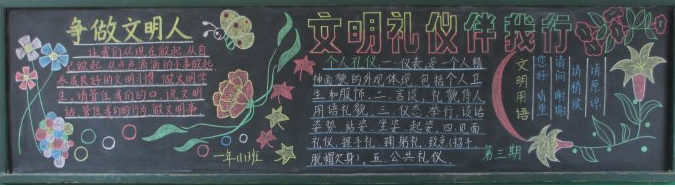 争做文明人
让我们从现在做起,从自
己做起,从点点滴滴的小事做起
养成良好的文明习惯,做文明学
生,请管住我们的口,说文明
话,管住我们的行为,做文明事
一年(1)班
文明礼仪伴我行
个人礼仪:一、仪表:是一个人精
神面貌的外观体现,包括个人卫
生和服饰。二、言谈:礼貌待人
用语礼貌。三、仪态:举行,谈话
姿势、站姿、坐姿、起姿。四、见面
礼仪:握手礼、鞠躬礼、致意(招手
脱帽欠身)。五、公共礼仪。
第三期
文明用语
您好 请坐
请问 谢谢
请稍候
请原谅